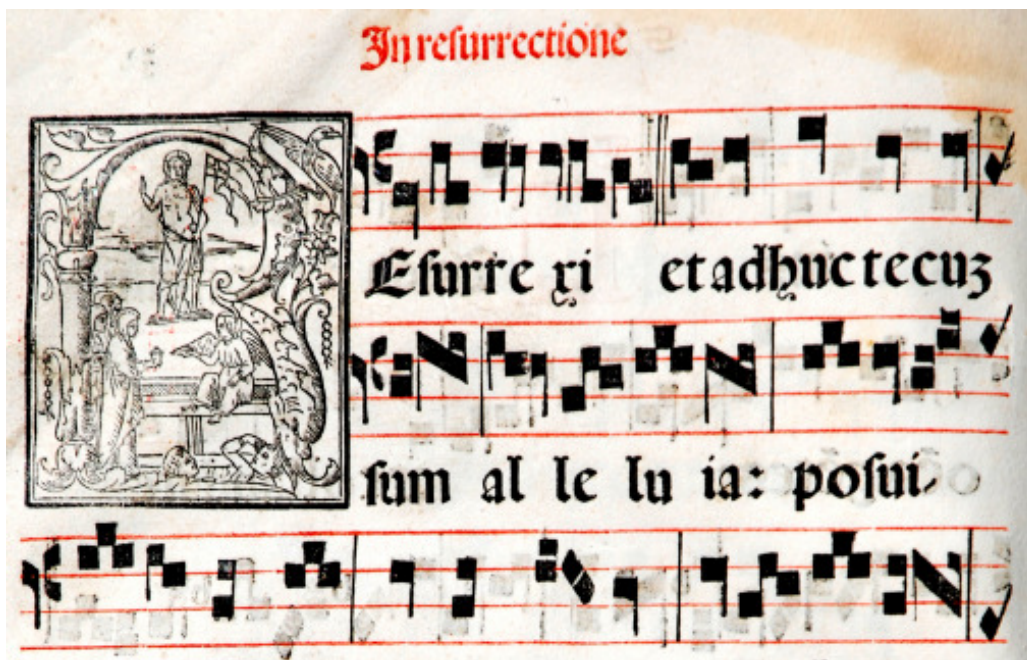 In resurrectione
Esurre xi et adhuc tecuz
sum al le lu ia: posui